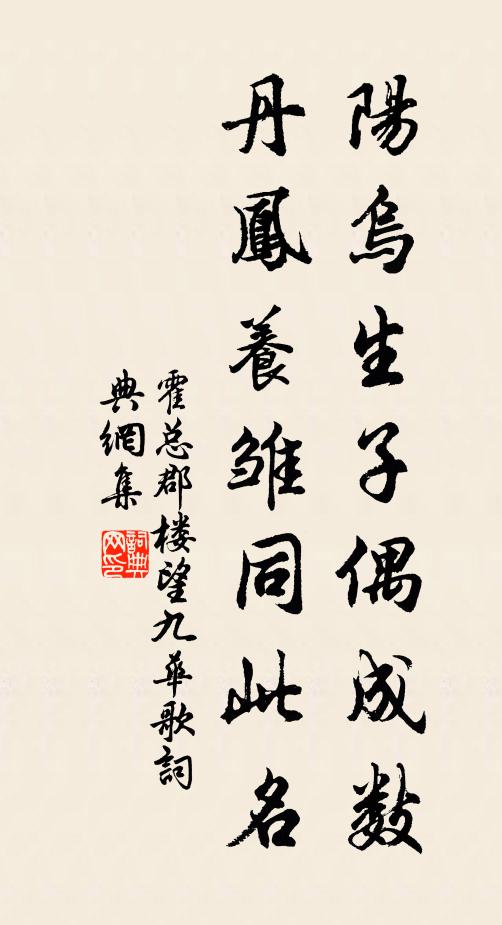 陽烏生子偶成數
丹鳳養雛同此名
霍总郡楼望九華歌詞
典網集
詞典
网印